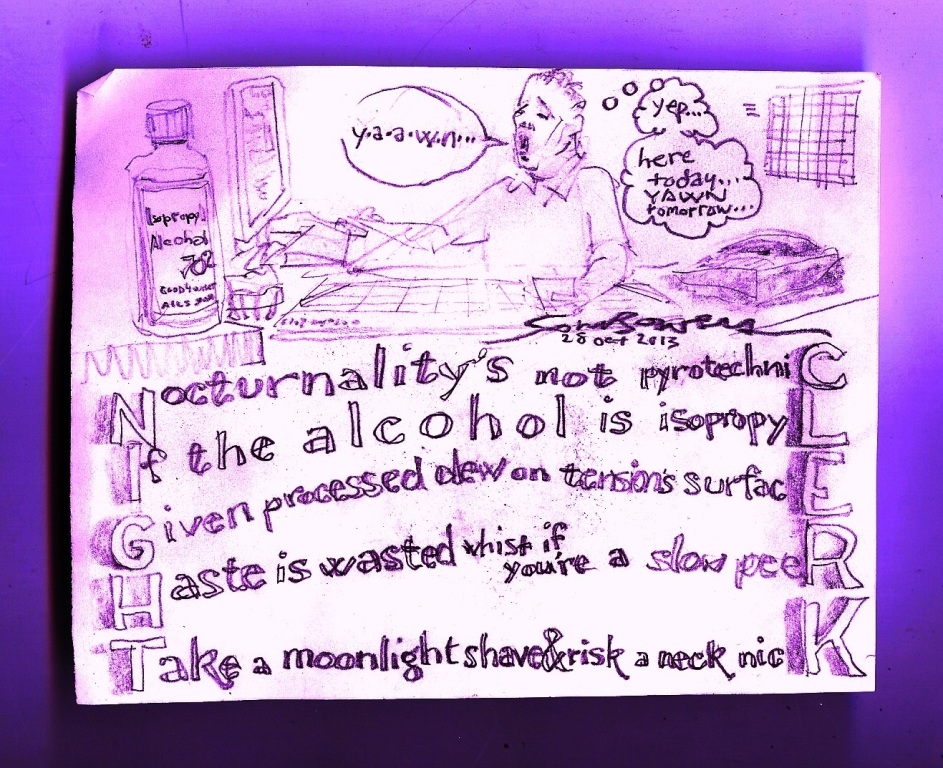 y.a.a.w.n...
yep...
here
today...
YAWN
tomorrow...
Isopropyl
Alcohol
70%
28 Oct 2013
Nocturnality's not pyrotechniC
If the alcohol is isopropyL
Given processed dew on tension's surfacE
Haste is wasted whist if
you're a slow peeR
Take a moonlight shave & risk a neck nicK